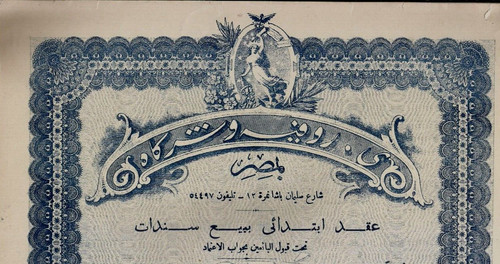 ى. روفيه وشركاه
بمصر
شارع سليمان باشا نمرة ١٢ - تليفون ٥٤٤٩٧
عقد ابتدائى ببيع سندات
تحت قبول البائعين بجواب الاعتماد